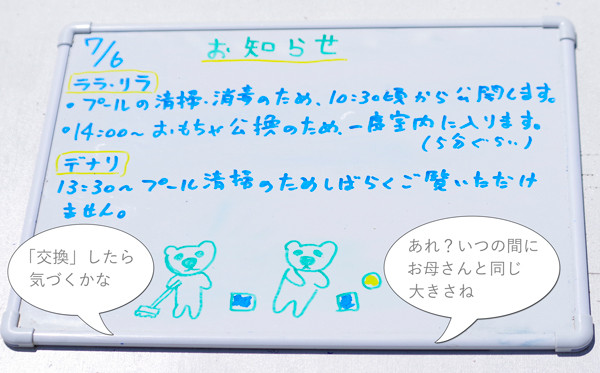 7/6
お知らせ
ララ・リラ
・プールの清掃・消毒のため、10:30頃から公開します。
・14:00～おもちゃ公換のため、一度室内に入ります。
(5分ぐらい)
デナリ
13:30～プール清掃のためしばらくご覧いただけ
ません。
「交換」したら
気づくかな
あれ？いつの間に
お母さんと同じ
大きさね